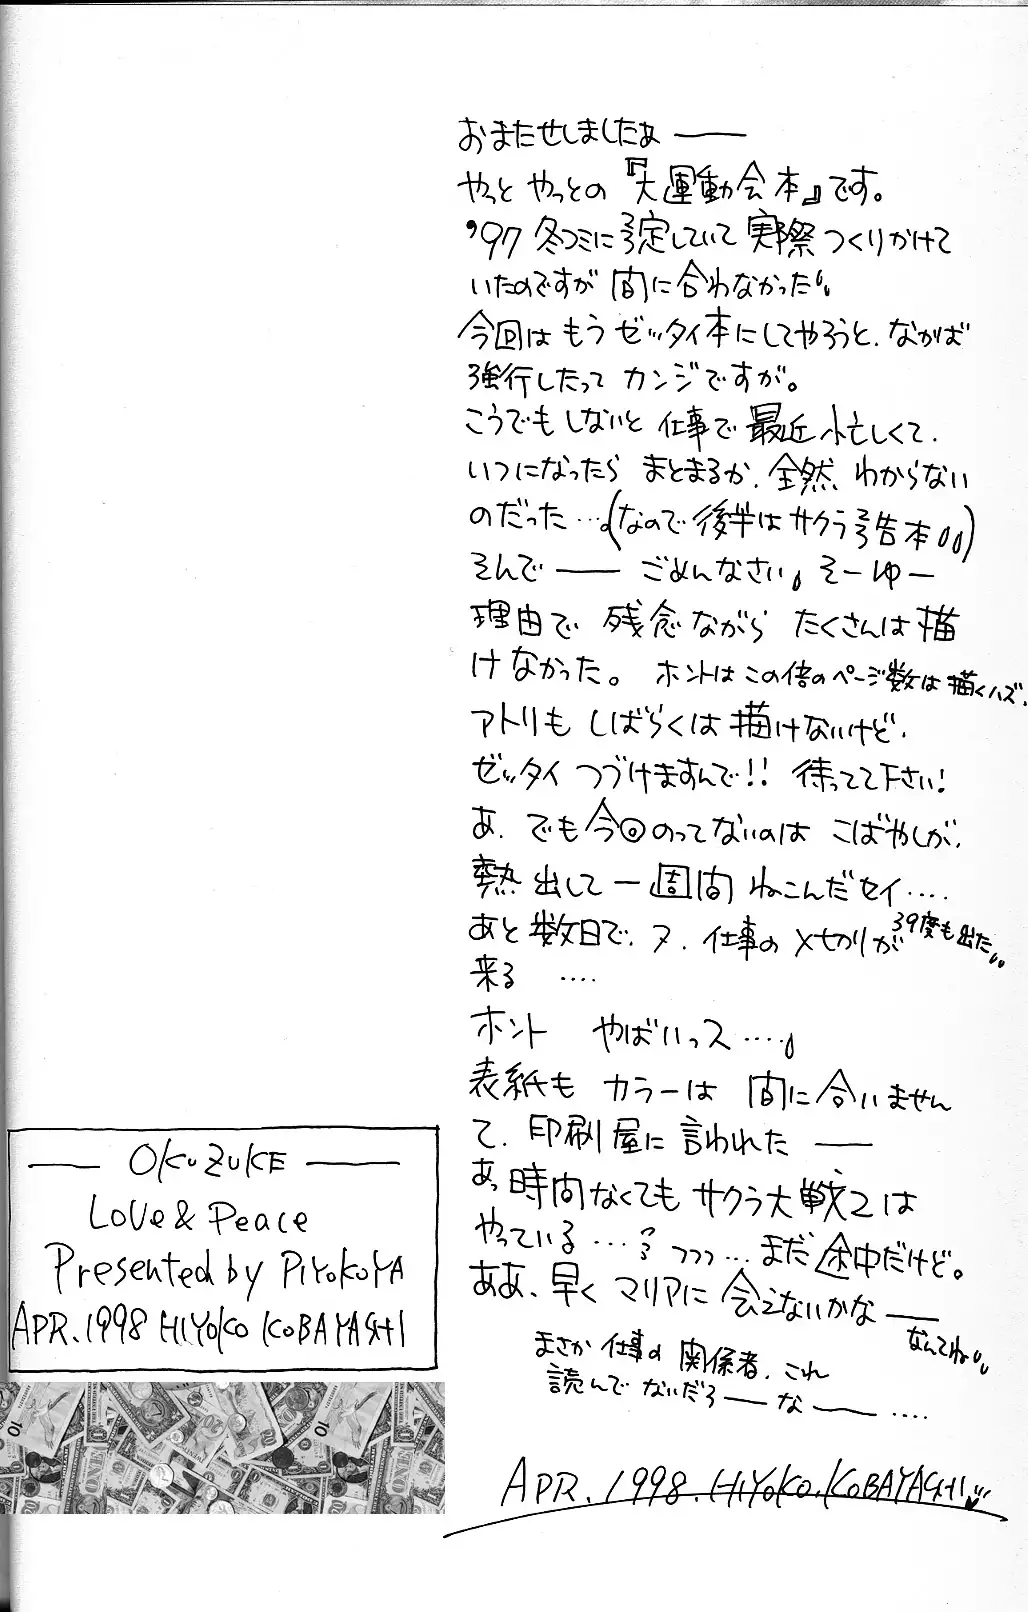 おまたせしましたぁ――
やっと やっとの『大運動会本』です。
'97 冬コミに予定していて 実際 つくりかけて
いたのですが 間に合わなかった
今回は もう ゼッタイ本にしてやろうと、なかば
強行したって カンジですが。
こうでも しないと 仕事で 最近 忙しくて、
いつになったら まとまるか、全然、わからない
のだった…。(なので 後半は サクラ予告本)
そんで―― ごめんなさい。そーゆー
理由で 残念ながら たくさんは 描
けなかった。 ホントは この倍の ページ数は 描くハズ。
アトリも しばらくは 描けないけど、
ゼッタイ つづけますんで!! 待ってて下さい!
あ、でも 今回のってないのは こばやしが、
熱出して 一週間 ねこんだセイ….
あと 数日で、ヌ、仕事の 〆切りが 39度も出た
来る ….
ホント やばいっス….
表紙も カラーは 間に合いません
て、印刷屋に 言われた――
あっ 時間なくても サクラ大戦2は
やっている …? つつつ… まだ 途中だけど。
ああ、早く マリアに 会えないかな――
なんてね
まさか 仕事の 関係者、これ
読んで ないだろーな――….
APR. 1998. HIYOKO. KOBAYASHI
OKUZUKE
Love & Peace
Presented by PIYOKOYA
APR. 1998 HIYOKO KOBAYASHI